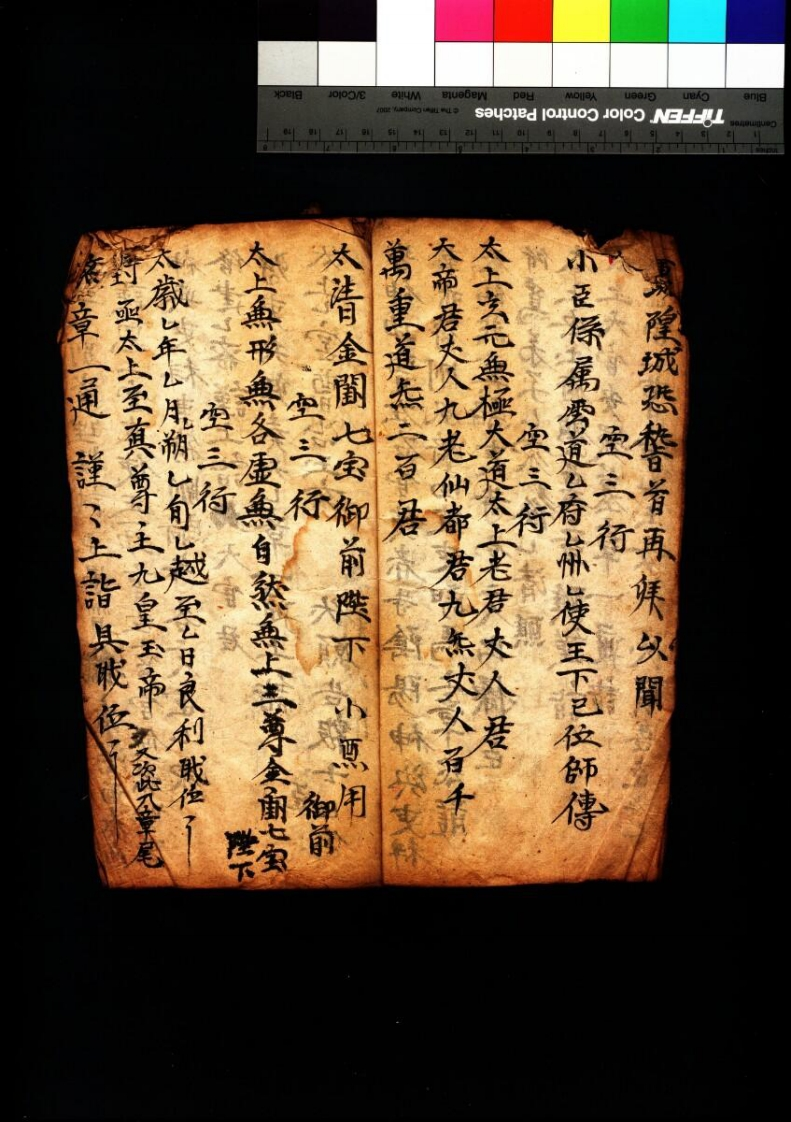 隍城恐稽首再拜以聞
空三行
小臣係屬雷道乙府乙州乙使王下已位師傳
空三行
太上玄元無極大道太上老君丈人君
大帝君丈人九老仙都君九炁丈人百千
萬重道炁二百君
太清金闕七宝御前陛下 小熏用
空三行
太上無形無各虛無自然無上三尊金闕七宝
御前
陛下
空三行
太歲乙年乙月乙朔乙旬乙越至乙日良利戝位
對亟太上至真尊主九皇玉帝
章尾
章一通謹〻上詣具戝位
TIFFEN Color Control Patches
© The Tiffen Company, 2007
Centimetres
Inches
Blue
Cyan
Green
Yellow
Red
Magenta
White
3/Color
Black